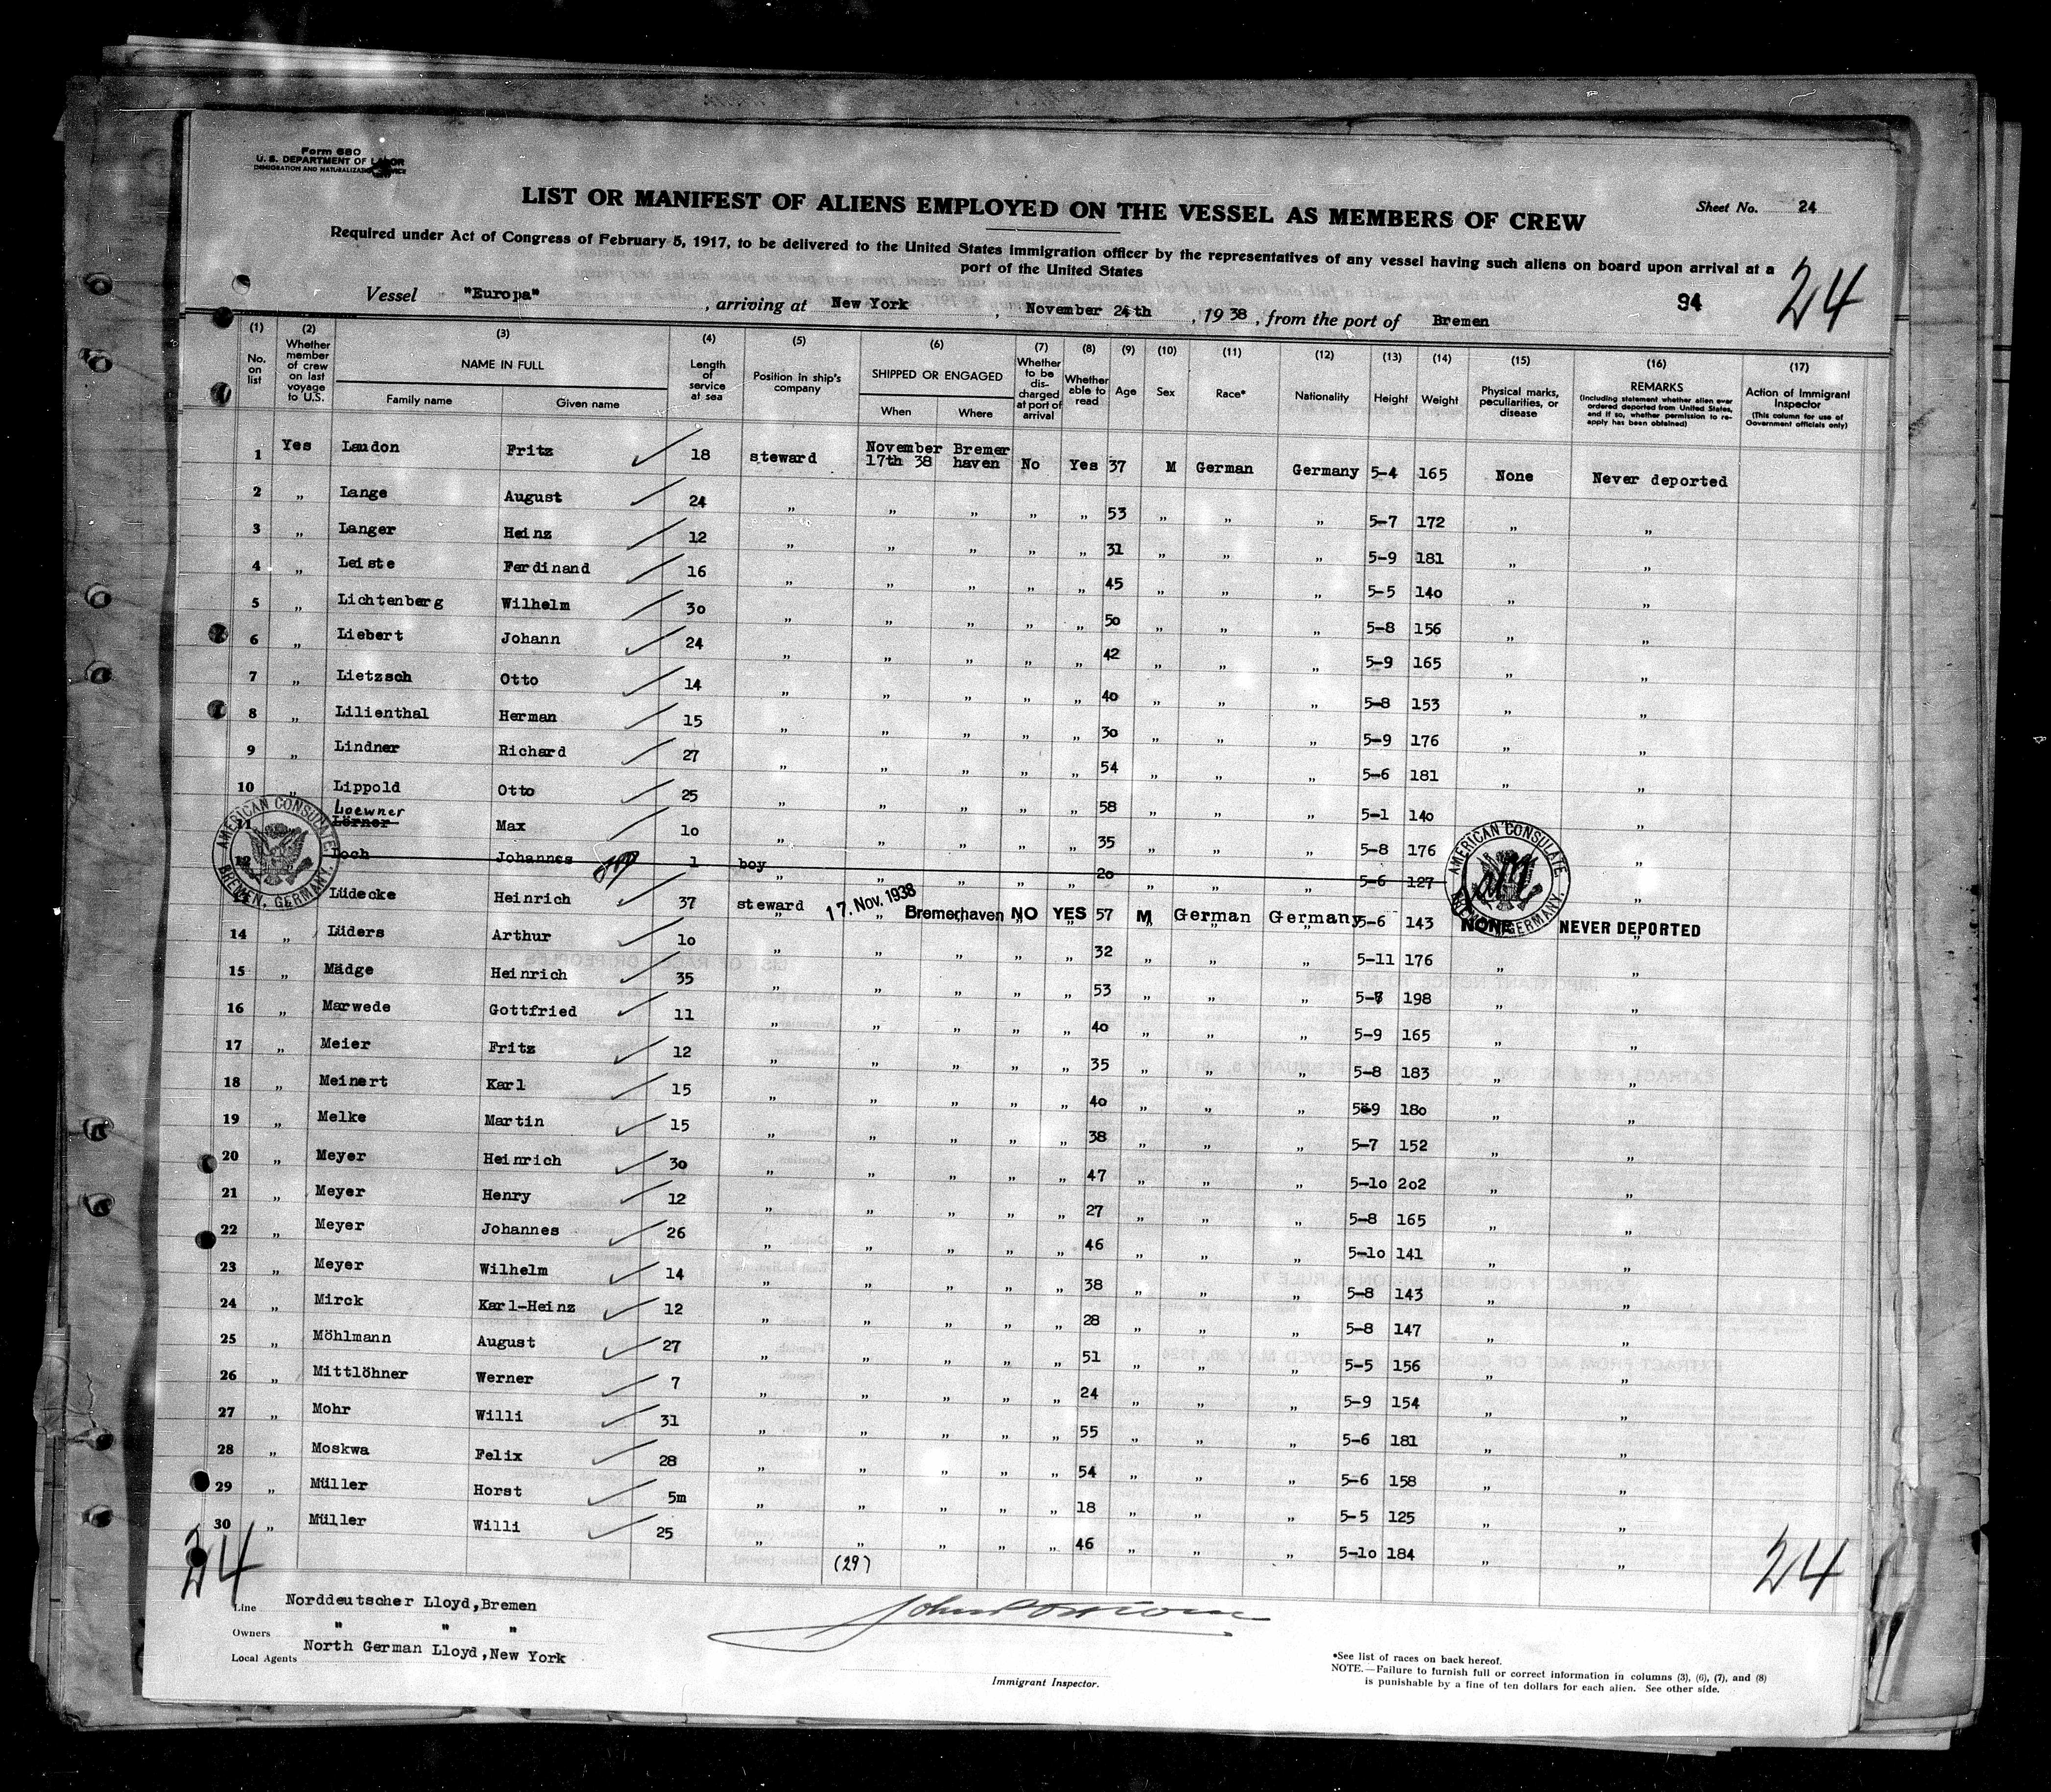 Form 680
U. S. DEPARTMENT OF LABOR
IMMIGRATION AND NATURALIZATION SERVICE
LIST OR MANIFEST OF ALIENS EMPLOYED ON THE VESSEL AS MEMBERS OF CREW
Sheet No. 24
Required under Act of Congress of February 5, 1917, to be delivered to the United States immigration officer by the representatives of any vessel having such aliens on board upon arrival at a
port of the United States
24
94
Vessel "Europa", arriving at New York, November 24th, 1938, from the port of Bremen
(1) No. on list
(2) Whether member of crew on last voyage to U.S.
(3) NAME IN FULL Family name Given name
(4) Length of service at sea
(5) Position in ship's company
(6) SHIPPED OR ENGAGED When Where
(7) Whether to be discharged at port of arrival
(8) Whether able to read
(9) Age
(10) Sex
(11) Race*
(12) Nationality
(13) Height
(14) Weight
(15) Physical marks, peculiarities, or disease
(16) REMARKS (Including statement whether alien ever ordered deported from United States, and if so, whether permission to reapply has been obtained)
(17) Action of Immigrant Inspector (This column for use of Government officials only)
1 Yes Laudon Fritz 18 steward November 17th 38 Bremerhaven No Yes 37 M German Germany 5-4 165 None Never deported
2 „ Lange August 24 „ „ „ „ „ 53 „ „ „ 5-7 172 „ „
3 „ Langer Heinz 12 „ „ „ „ „ 31 „ „ „ 5-9 181 „ „
4 „ Leiste Ferdinand 16 „ „ „ „ „ 45 „ „ „ 5-5 140 „ „
5 „ Lichtenberg Wilhelm 30 „ „ „ „ „ 50 „ „ „ 5-8 156 „ „
6 „ Liebert Johann 24 „ „ „ „ „ 42 „ „ „ 5-9 165 „ „
7 „ Lietzsch Otto 14 „ „ „ „ „ 40 „ „ „ 5-8 153 „ „
8 „ Lilienthal Herman 15 „ „ „ „ „ 30 „ „ „ 5-9 176 „ „
9 „ Lindner Richard 27 „ „ „ „ „ 54 „ „ „ 5-6 181 „ „
10 „ Lippold Otto 25 „ „ „ „ „ 58 „ „ „ 5-1 140 „ „
Loewner
11 Lörner Max 10 „ „ „ „ „ 35 „ „ „ 5-8 176 „
12 Loch Johannes 1 boy „ „ „ „ 20 „ „ „ 5-6 127 „
AMERICAN CONSULATE BREMEN, GERMANY.
AMERICAN CONSULATE BREMEN, GERMANY.
Lüdecke Heinrich 37 steward 17. Nov. 1938 Bremerhaven NO YES 57 M German Germany 5-6 143 NONE NEVER DEPORTED
14 „ Lüders Arthur 10 „ „ „ „ „ 32 „ „ „ 5-11 176 „ „
15 „ Mädge Heinrich 35 „ „ „ „ „ 53 „ „ „ 198 „ „
16 „ Marwede Gottfried 11 „ „ „ „ „ 40 „ „ „ 5-9 165 „ „
17 „ Meier Fritz 12 „ „ „ „ „ 35 „ „ „ 5-8 183 „ „
18 „ Meinert Karl 15 „ „ „ „ „ 40 „ „ „ 5-9 180 „ „
19 „ Melke Martin 15 „ „ „ „ „ 38 „ „ „ 5-7 152 „ „
20 „ Meyer Heinrich 30 „ „ „ „ „ 47 „ „ „ 5-10 202 „ „
21 „ Meyer Henry 12 „ „ „ „ „ 27 „ „ „ 5-8 165 „ „
22 „ Meyer Johannes 26 „ „ „ „ „ 46 „ „ „ 5-10 141 „ „
23 „ Meyer Wilhelm 14 „ „ „ „ „ 38 „ „ „ 5-8 143 „ „
24 „ Mirck Karl-Heinz 12 „ „ „ „ „ 28 „ „ „ 5-8 147 „ „
25 „ Möhlmann August 27 „ „ „ „ „ 51 „ „ „ 5-5 156 „ „
26 „ Mittlöhner Werner 7 „ „ „ „ „ 24 „ „ „ 5-9 154 „ „
27 „ Mohr Willi 31 „ „ „ „ „ 55 „ „ „ 5-6 181 „ „
28 „ Moskwa Felix 28 „ „ „ „ „ 54 „ „ „ 5-6 158 „ „
29 „ Müller Horst 5m „ „ „ „ „ 18 „ „ „ 5-5 125 „ „
30 „ Müller Willi 25 „ „ „ „ „ 46 „ „ „ 5-10 184 „ „
24 (29) 24
Line Norddeutscher Lloyd, Bremen
Owners " " "
Local Agents North German Lloyd, New York
Immigrant Inspector.
*See list of races on back hereof.
NOTE.—Failure to furnish full or correct information in columns (3), (6), (7), and (8)
is punishable by a fine of ten dollars for each alien. See other side.